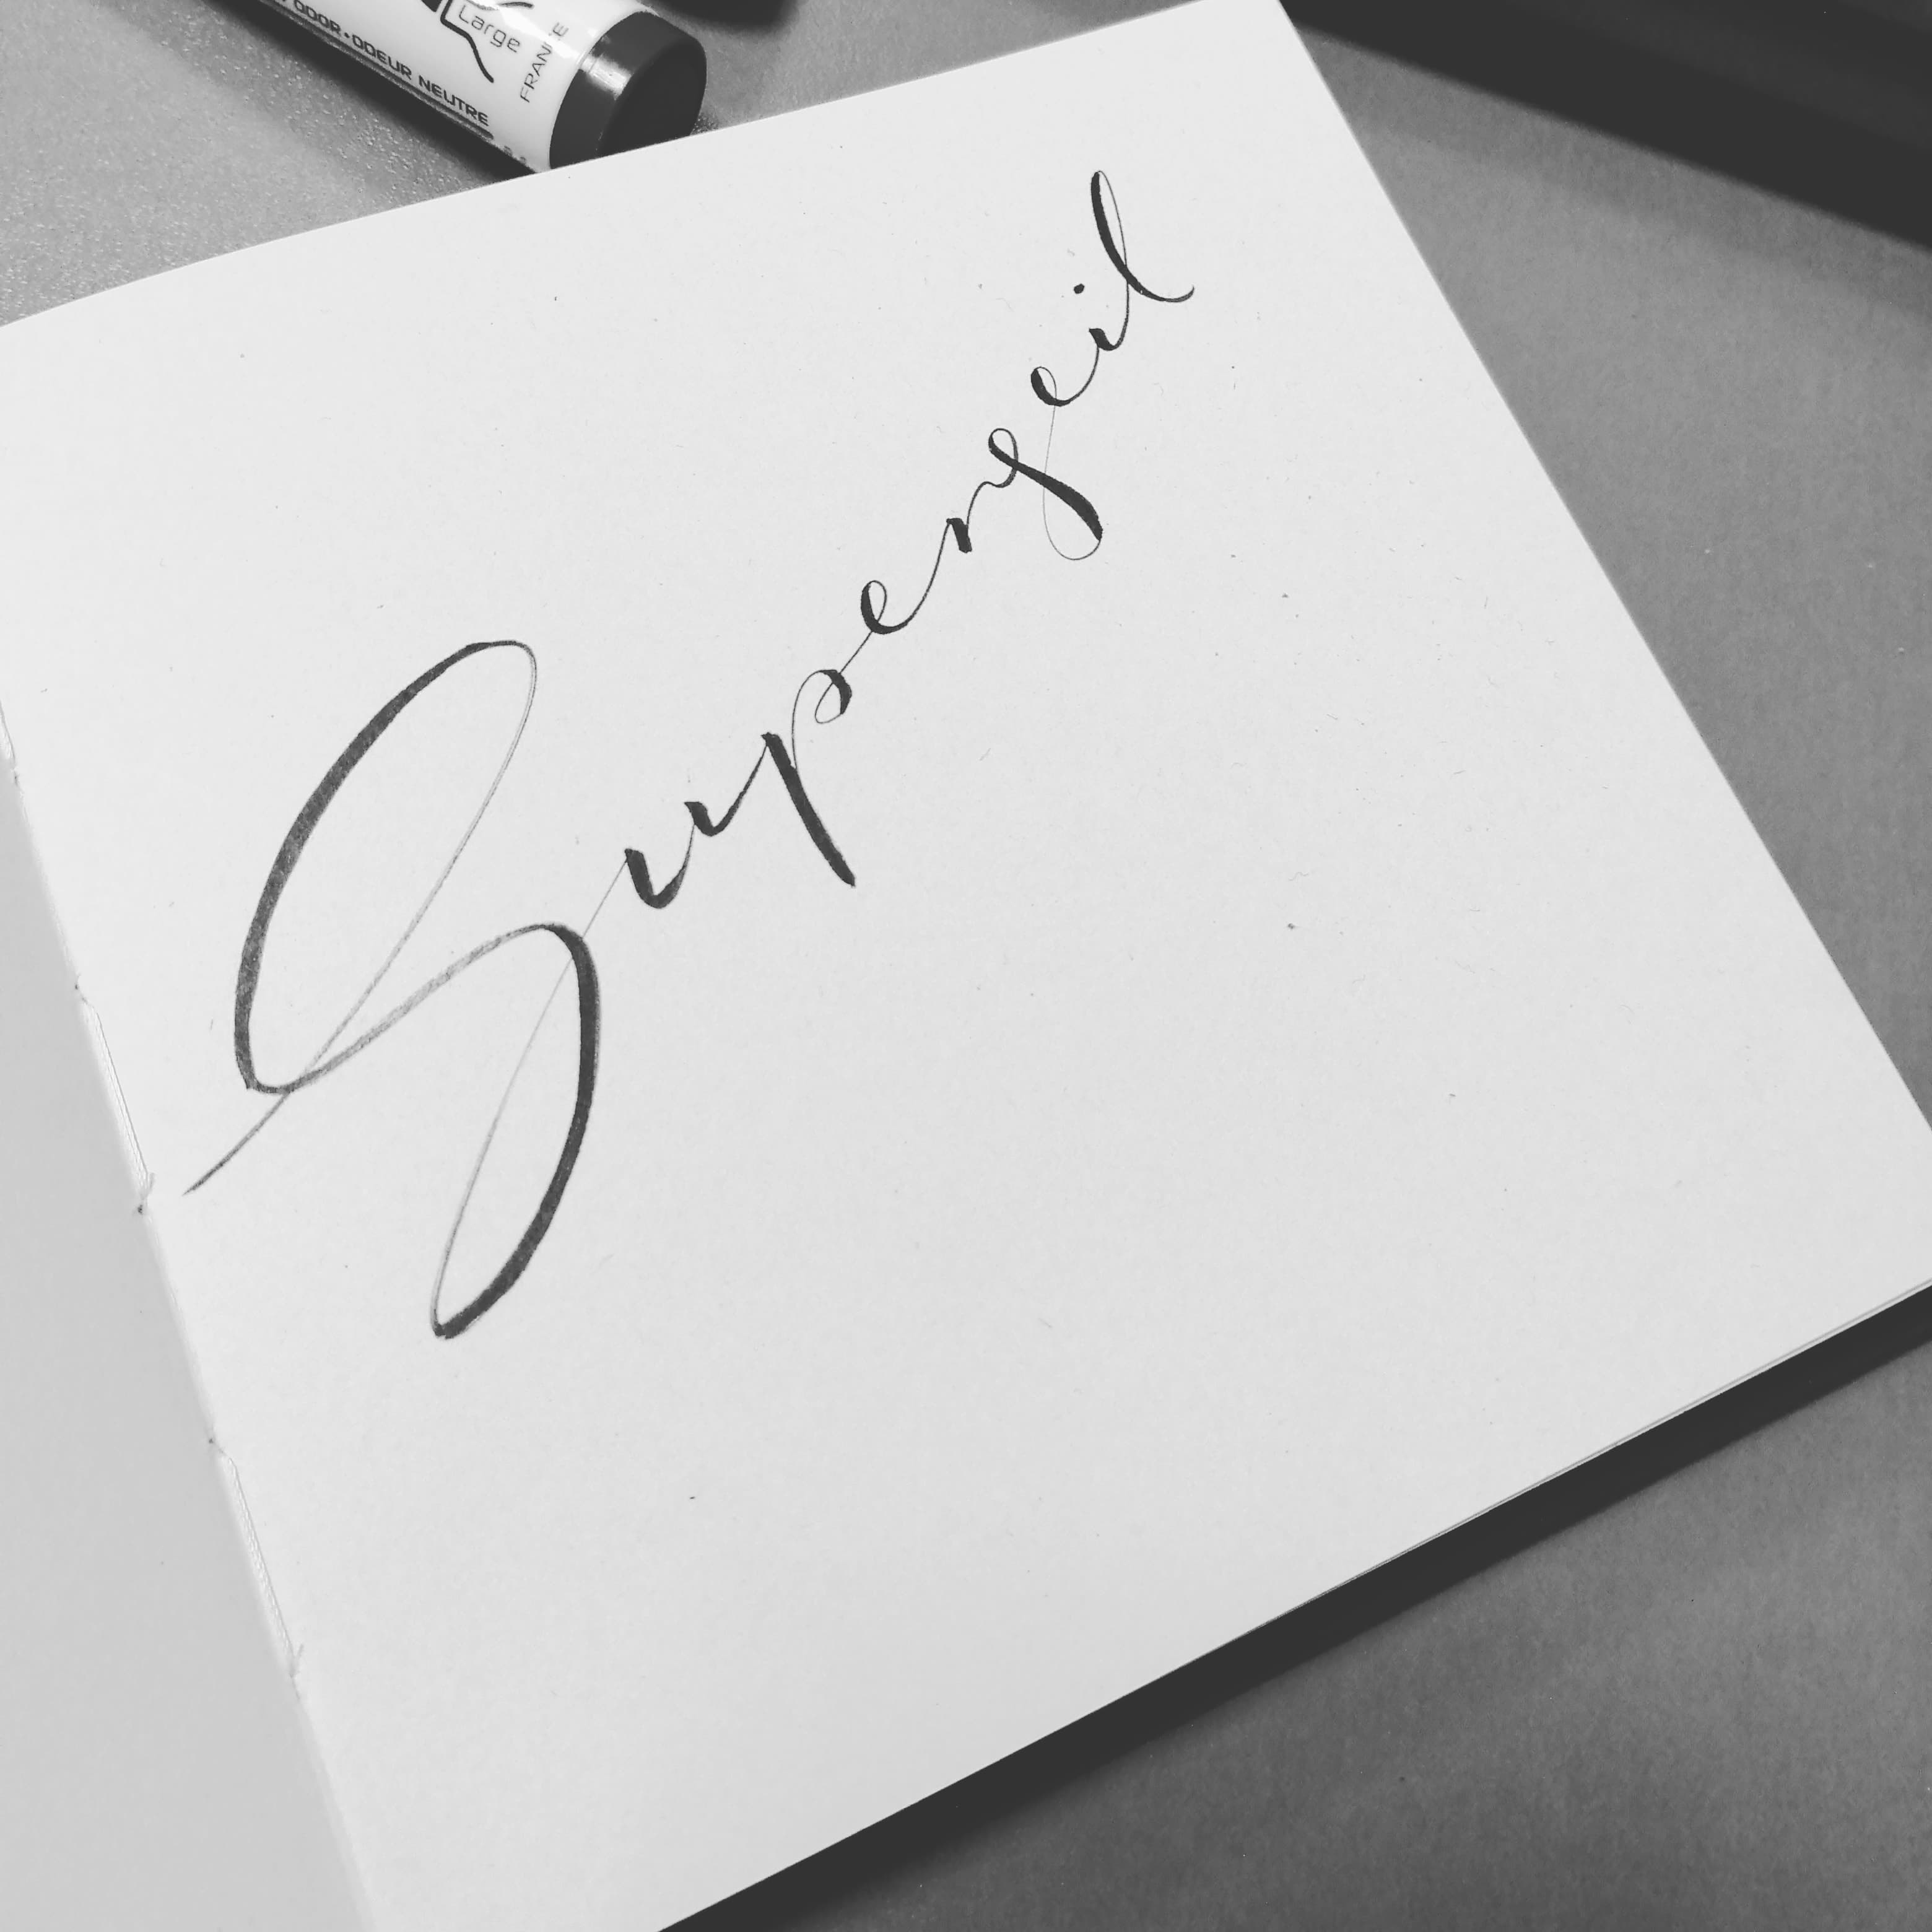 Large
FRANCE
ODOR • ODEUR NEUTRE
Supergeil